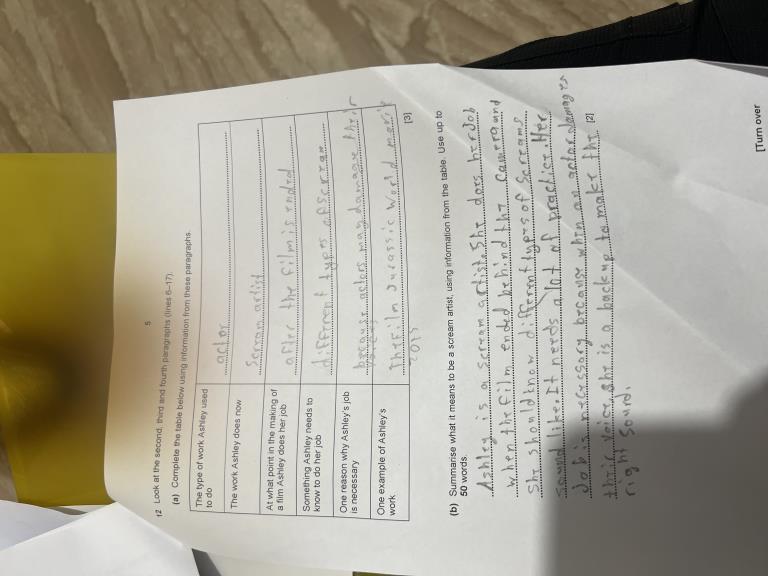 5
12 Look at the second, third and fourth paragraphs (lines 6–17).
(a) Complete the table below using information from these paragraphs.
The type of work Ashley used to do
actor
The work Ashley does now
Scream artist
At what point in the making of a film Ashley does her job
after the film is ended
Something Ashley needs to know to do her job
different types of scream
One reason why Ashley's job is necessary
because actors may damage their
voices
One example of Ashley's work
The film Jurassic World
2015
[3]
(b) Summarise what it means to be a scream artist, using information from the table. Use up to
50 words.
Ashley is a scream artist. She does her Job
when the film ended behind the camera and
She should now different types of screams
sound like. It needs a lot of practice. Her
Job is necessary because when an actor damages
their voice she is a backup to make the
right sound.
[2]
[Turn over